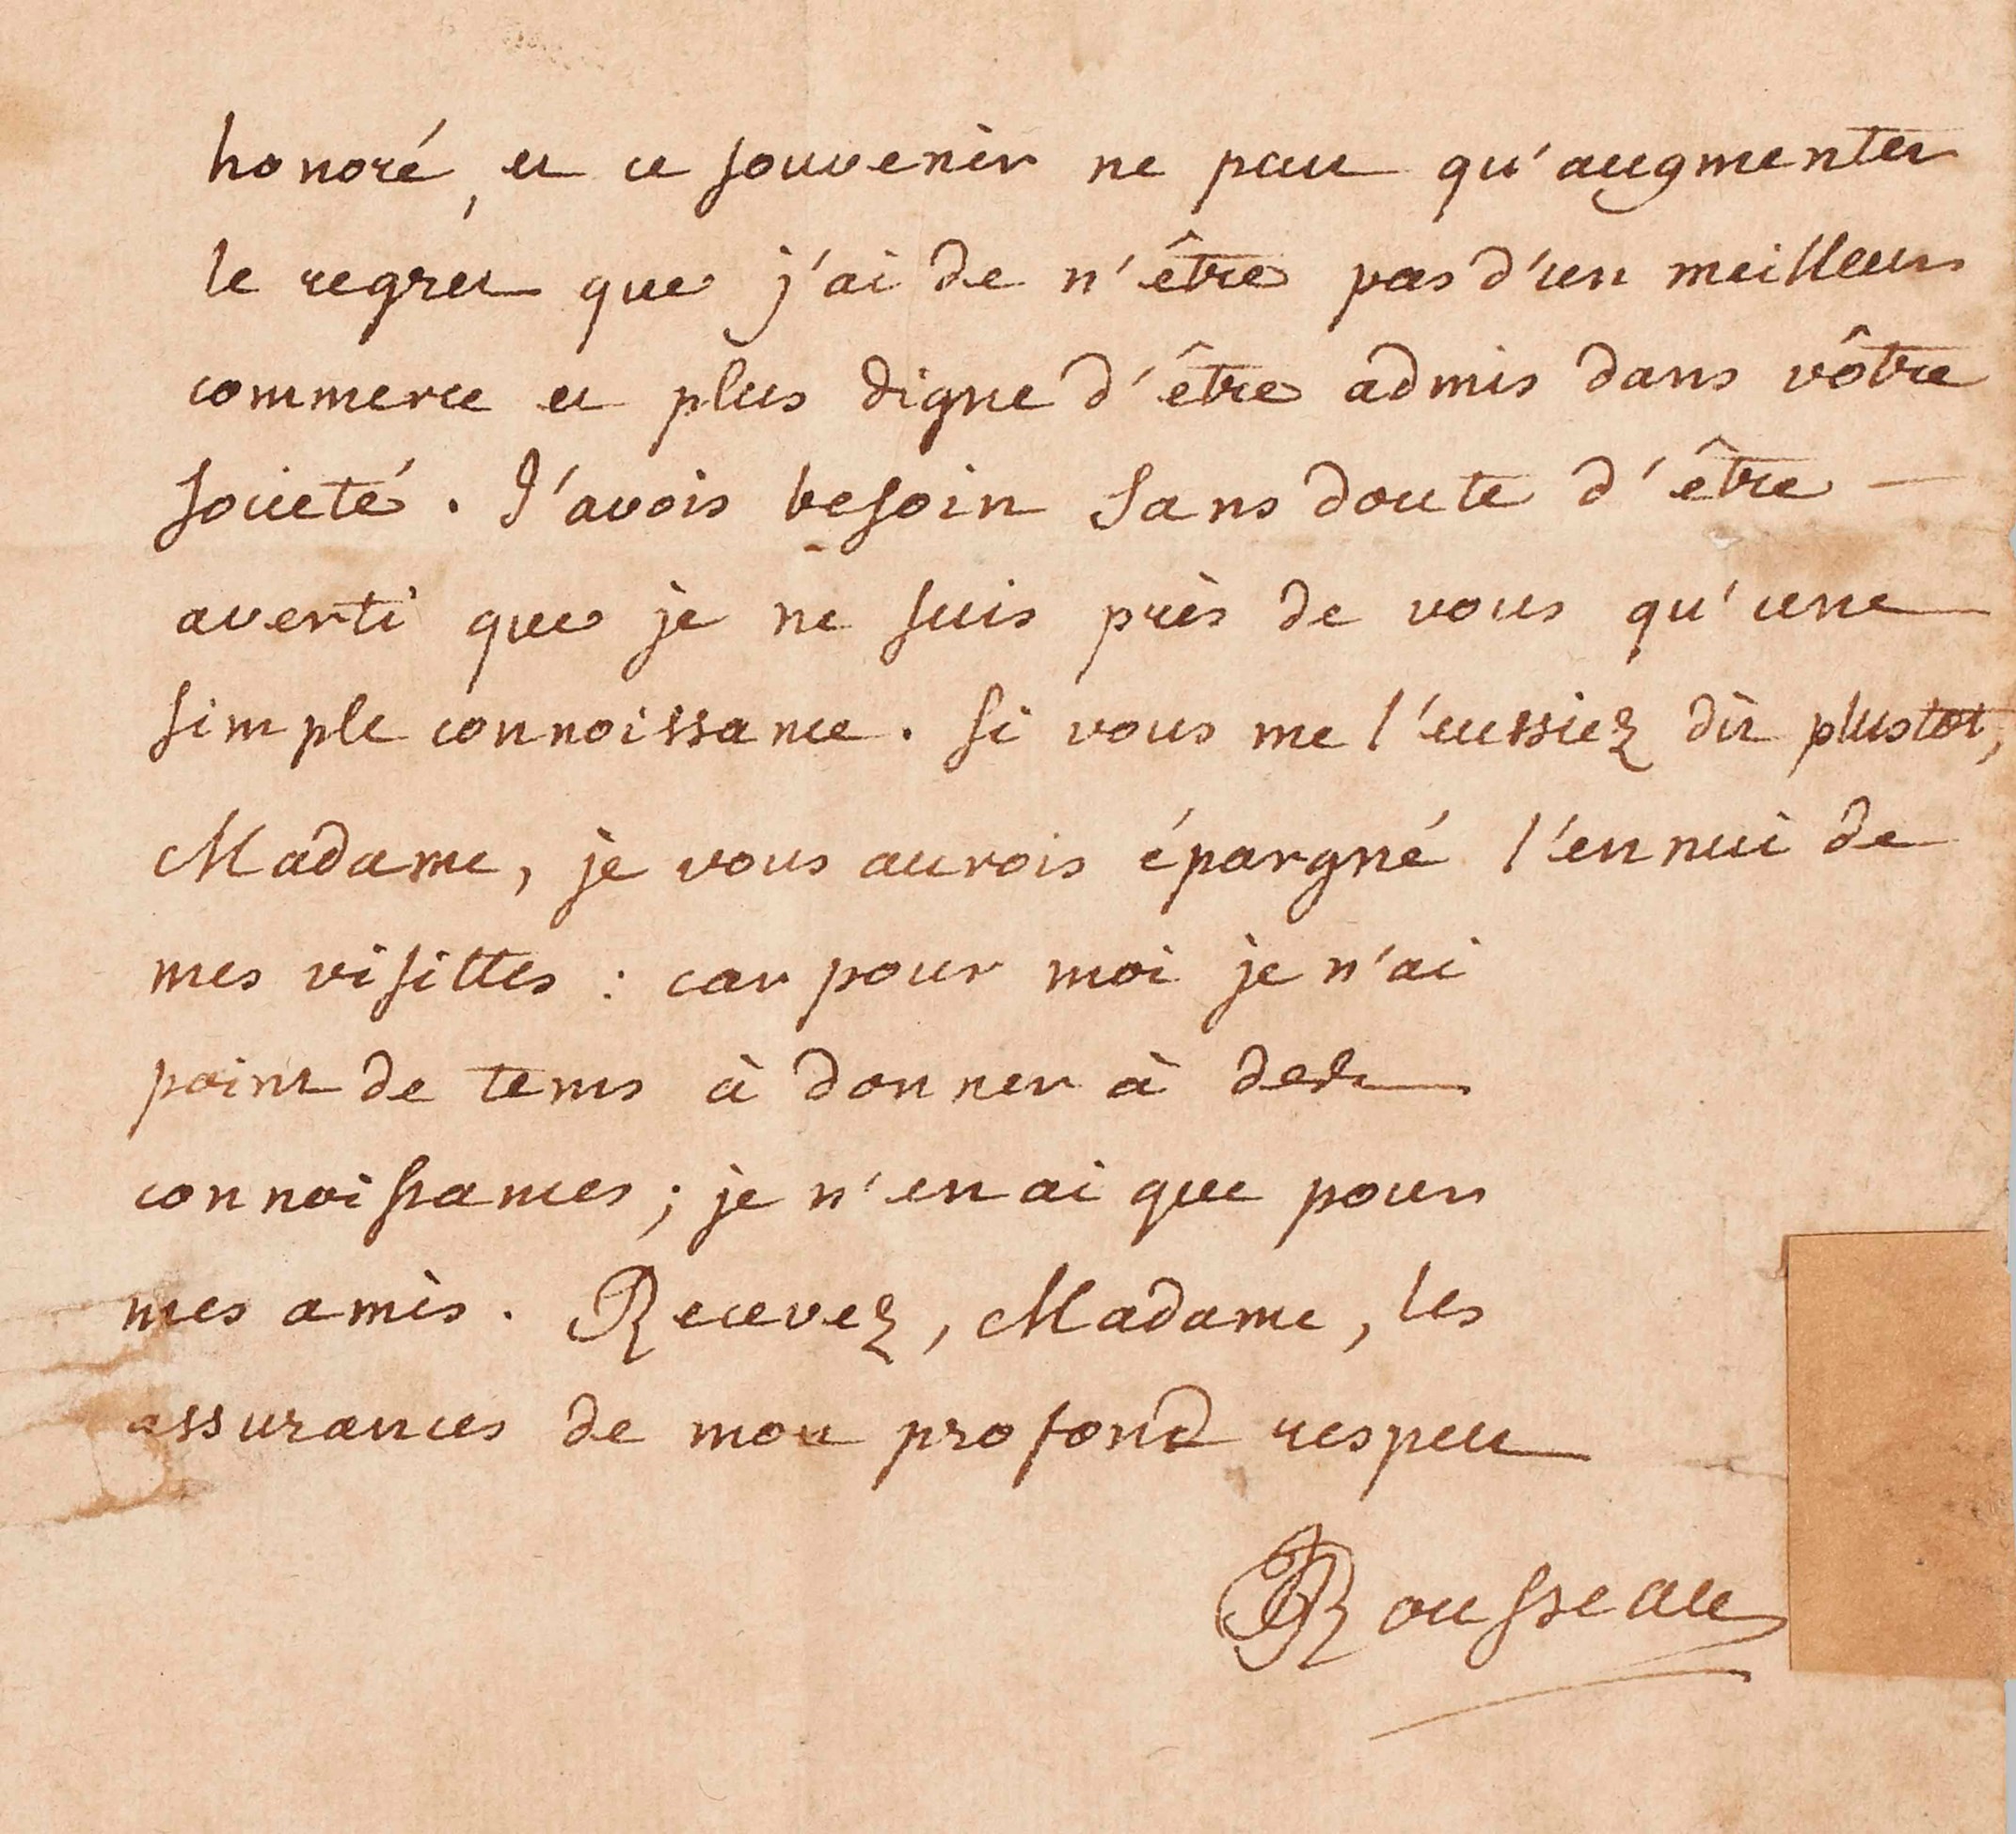 honoré, et ce souvenir ne peut qu'augmenter
le regret que j'ai de n'être pas d'un meilleur
commerce et plus digne d'être admis dans vôtre
societé. J'avois besoin sans doute d'être
averti que je ne suis près de vous qu'une
simple connoissance. Si vous me l'eussiez dit plustot,
Madame, je vous aurois épargné l'ennui de
mes visittes : car pour moi je n'ai
point de tems à donner à des
connoissances ; je n'en ai que pour
mes amis. Recevez, Madame, les
assurances de mon profond respect
JJRousseau